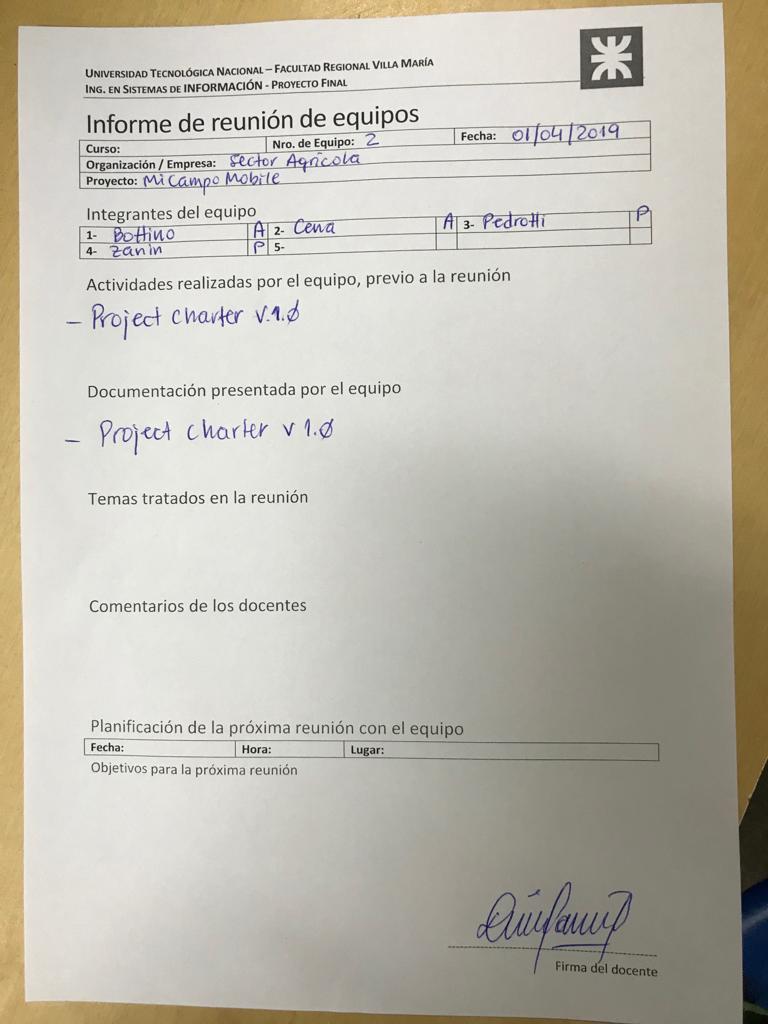 UNIVERSIDAD TECNOLÓGICA NACIONAL – FACULTAD REGIONAL VILLA MARÍA
ING. EN SISTEMAS DE INFORMACIÓN - PROYECTO FINAL
Informe de reunión de equipos
Curso: Nro. de Equipo: 2 Fecha: 01/04/2019
Organización / Empresa: Sector Agrícola
Proyecto: Mi Campo Mobile
Integrantes del equipo
1- Bottino A 2- Cena A 3- Pedrotti P
4- Zanin P 5-
Actividades realizadas por el equipo, previo a la reunión
– Project charter v.1.0
Documentación presentada por el equipo
– Project charter v 1.0
Temas tratados en la reunión
Comentarios de los docentes
Planificación de la próxima reunión con el equipo
Fecha: Hora: Lugar:
Objetivos para la próxima reunión
Firma del docente